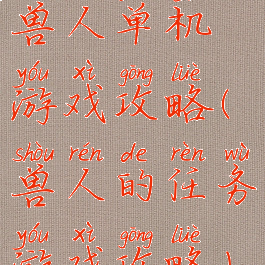 兽人单机
yóu xì gōng lüè
游戏攻略(
shòu rén de rèn wù
兽人的任务
yóu xì gōng lüè
游戏攻略)